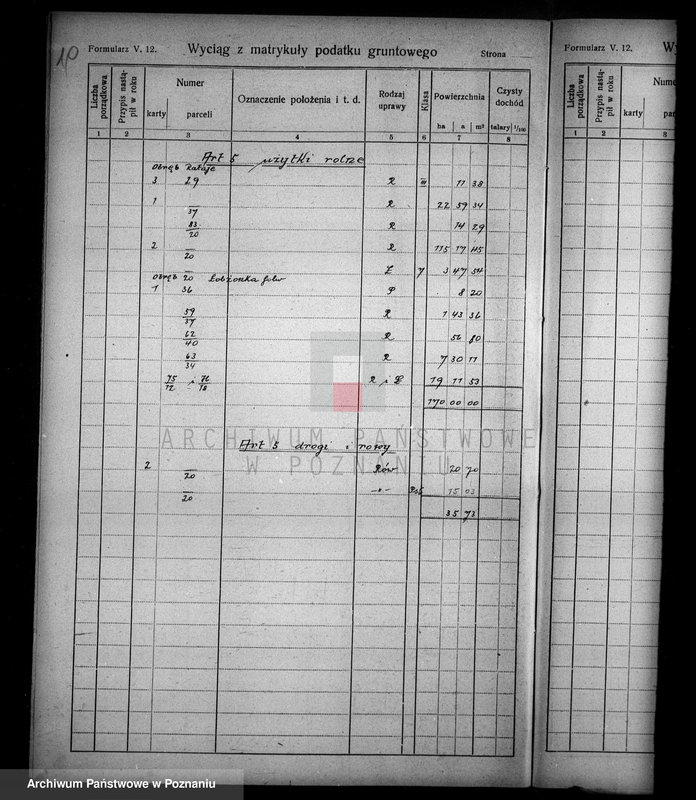 10
Formularz V. 12. Wyciąg z matrykuły podatku gruntowego Strona
Liczba porządkowa Przypis nastąpił w roku Numer Oznaczenie położenia i t. d. Rodzaj uprawy Klasa Powierzchnia Czysty dochód
karty parceli ha a m² talary 1/100
1 2 3 4 5 6 7 8
Art 5 użytki rolne
Obręb Kataje
3 29 R III 11 38
1 37 R 22 59 34
83/20 R 14 29
2 20 R 115 17 45
20 Ł 3 47 54
Obręb Łobżonka folw
1 36 P 8 20
59/37 R 1 43 36
62/40 R 56 80
63/34 R 7 30 11
75/12 i 76/18 R i Ł 19 11 53
170 00 00
Art 5 drogi i rowy
2 20 Rów 20 70
20 -"- 15 03
35 73
ARCHIWUM PAŃSTWOWE
W POZNANIU
Formularz V. 12. Wy
Liczba porządkowa Przypis nastąpił w roku Nume
karty parce
1 2 3
Archiwum Państwowe w Poznaniu